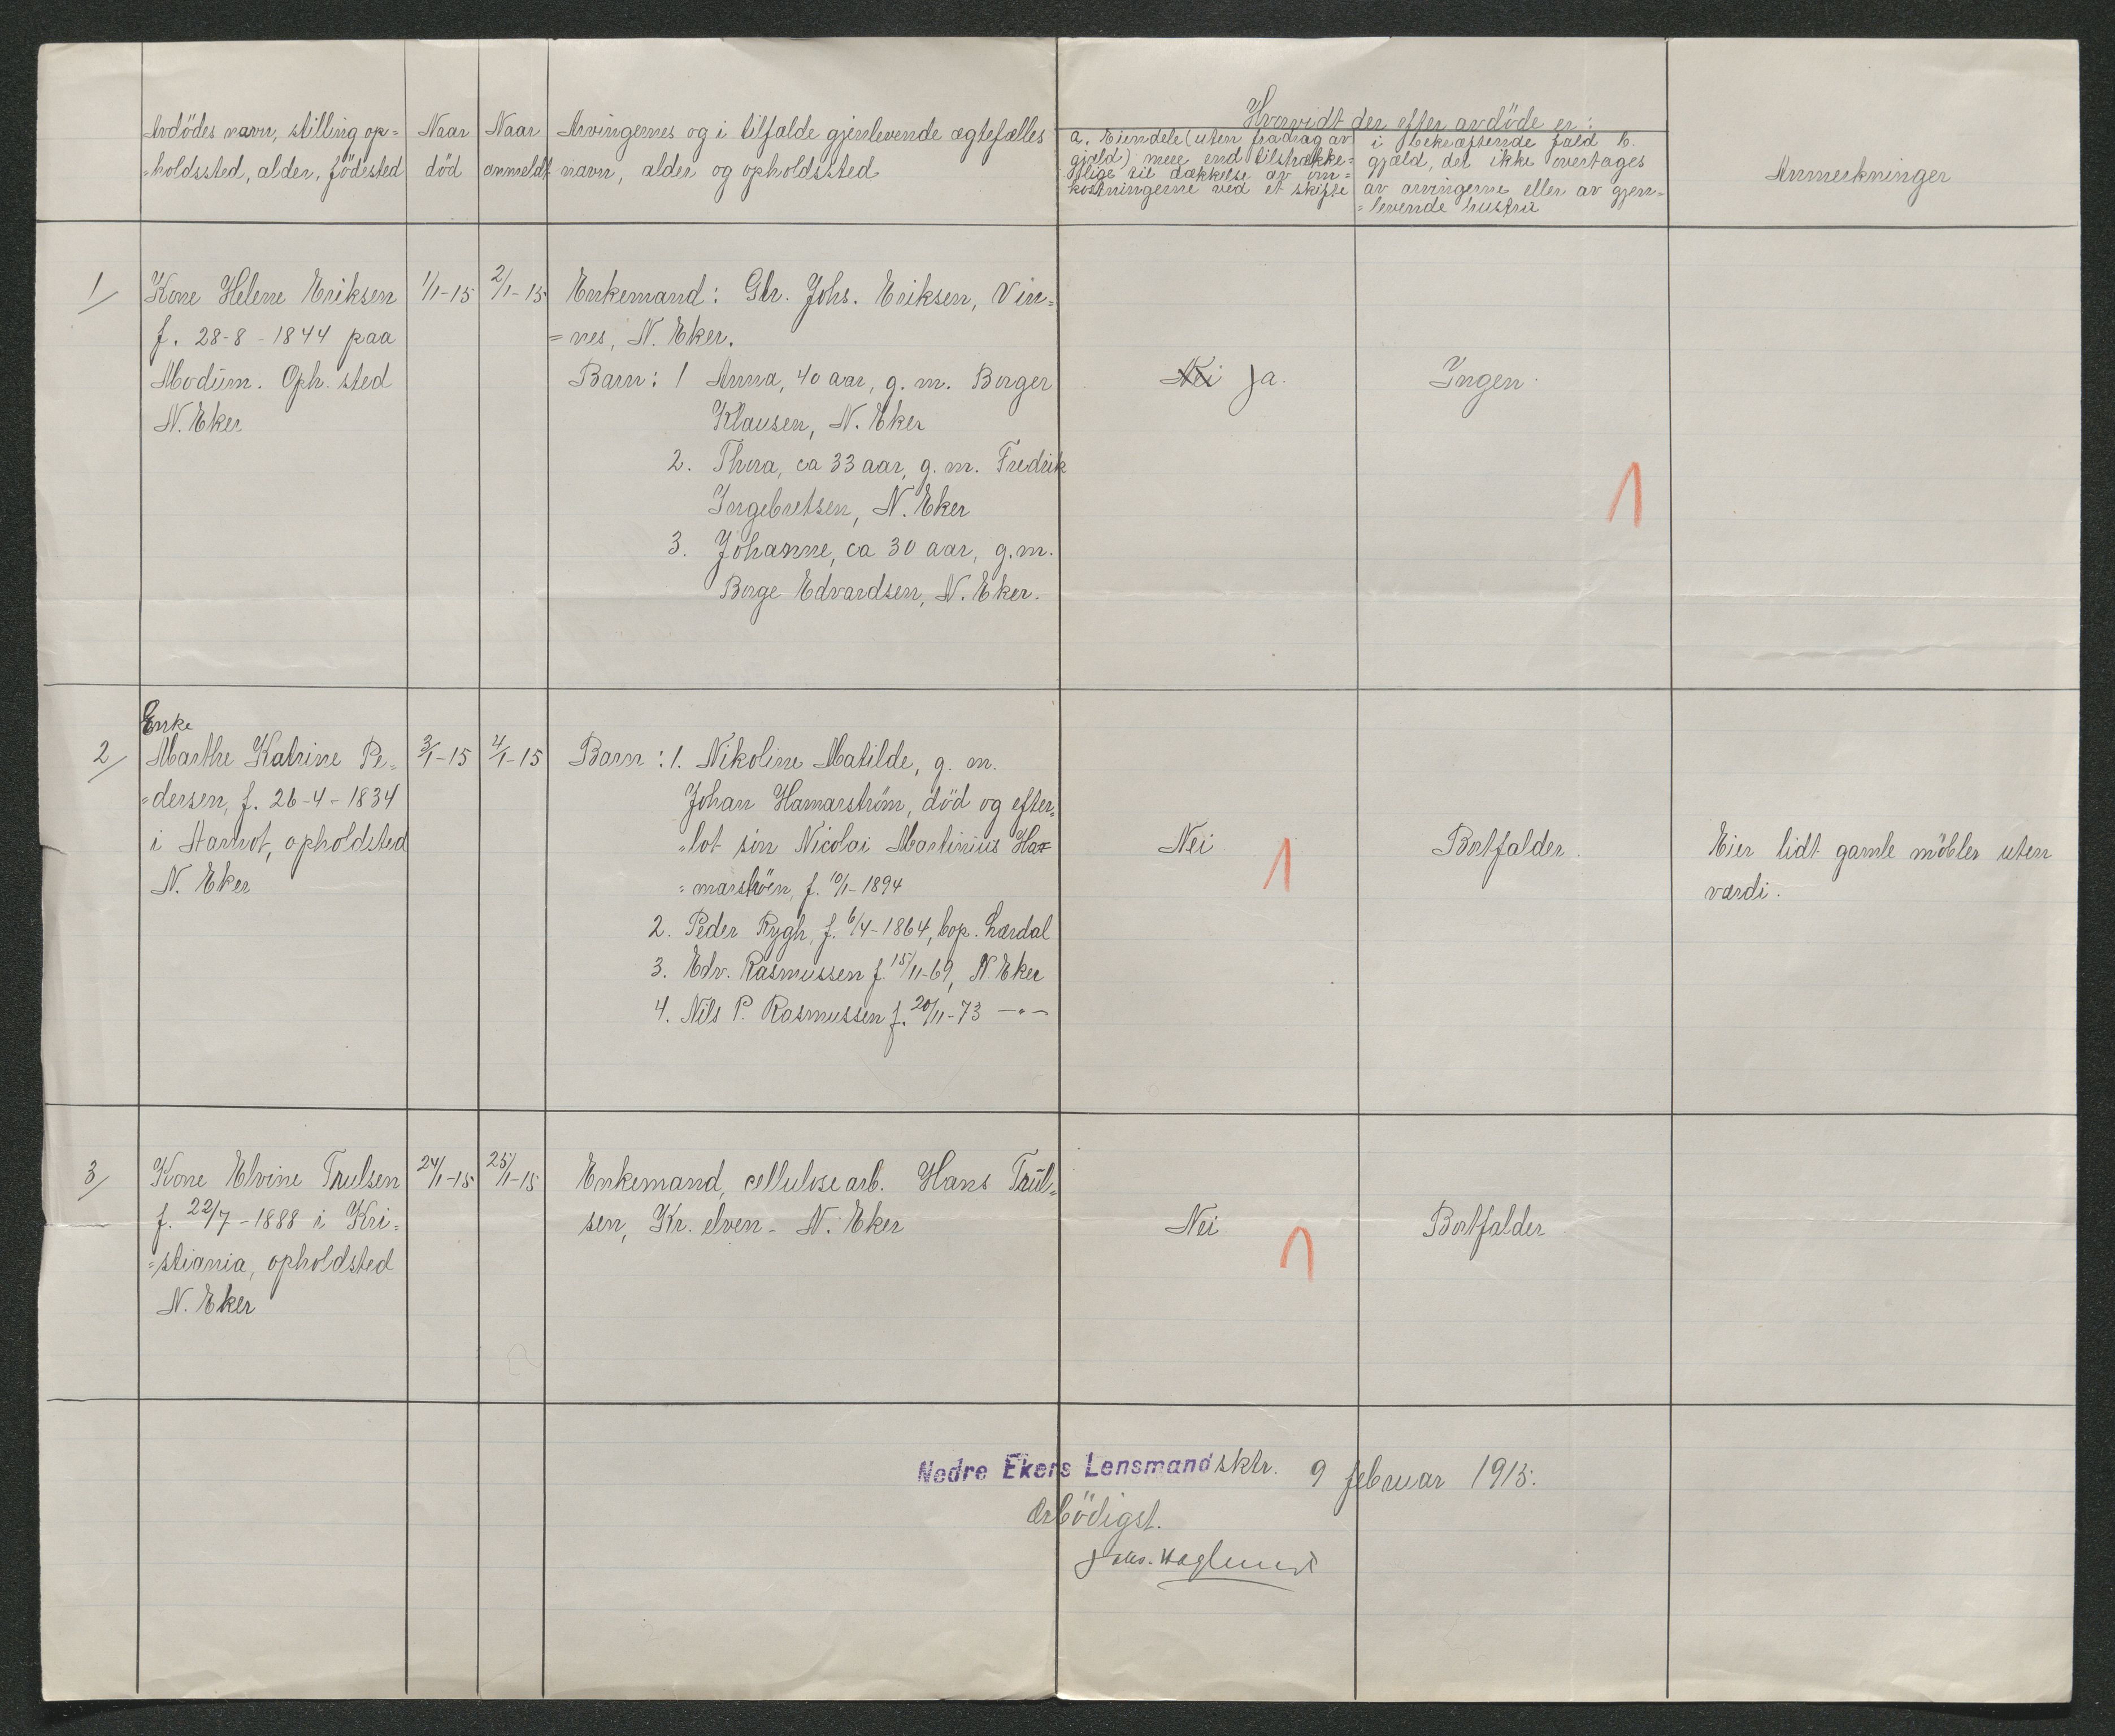 Avdödes navn, stilling op=
=holdssted, alder, födested
Naar
död
Naar
anmeldt
Arvingernes og i tilfælde gjenlevende ægtefælles
navn, alder og opholdssted
Hvorvidt der efter avdöde er:
a. Eiendele (uten fradrag av
gjæld) mere end tilstrække=
lige til dækkelse av om=
kostningerne ved et skifte
i bekræftende fald b.
gjæld, det ikke overtages
av arvingerne eller av gjen=
=levende hustru
Anmerkninger
1/
Kone Helene Eriksen
f. 28-8-1844 paa
Modum. Oph. sted
N. Eker
1/1-15
2/1-15
Enkemand: Gbr. Johs. Eriksen, Vin=
=nes, N. Eker.
Barn: 1 Anna, 40 aar, g. m. Borger
Klausen, N. Eker
2. Thora, ca 33 aar, g. m. Fredrik
Ingebretsen, N. Eker
3. Johanne, ca 30 aar, g. m.
Borge Edvardsen, N. Eker.
Nei Ja.
Ingen
1
2/
Enke
Marthe Katrine Pe=
=dersen, f. 26-4-1834
i Aamot, opholdsted
N. Eker
3/1-15
4/1-15
Barn: 1. Nikoline Matilde, g. m.
Johan Hamarström, död og efter=
=lot sön Nicolai Martinius Ha=
=marströn, f. 10/1-1894
2. Peder Rygh, f. 6/4-1864, bop. Lærdal
3. Edv. Rasmussen f. 15/11-69, N. Eker
4. Nils P. Rasmussen f. 20/11-73 —"—
Nei
1
Bortfalder.
Eier lidt gamle möbler uten
værdi.
3/
Kone Elvine Trulsen
f. 22/7-1888 i Kri=
=stiania, opholdsted
N. Eker
24/1-15
25/1-15
Enkemand, cellulosearb. Hans Trul=
sen, Kr. elven - N. Eker
Nei
1
Bortfalder
Nedre Ekers Lensmandsktr. 9 februar 1915.
Ærbödigst.